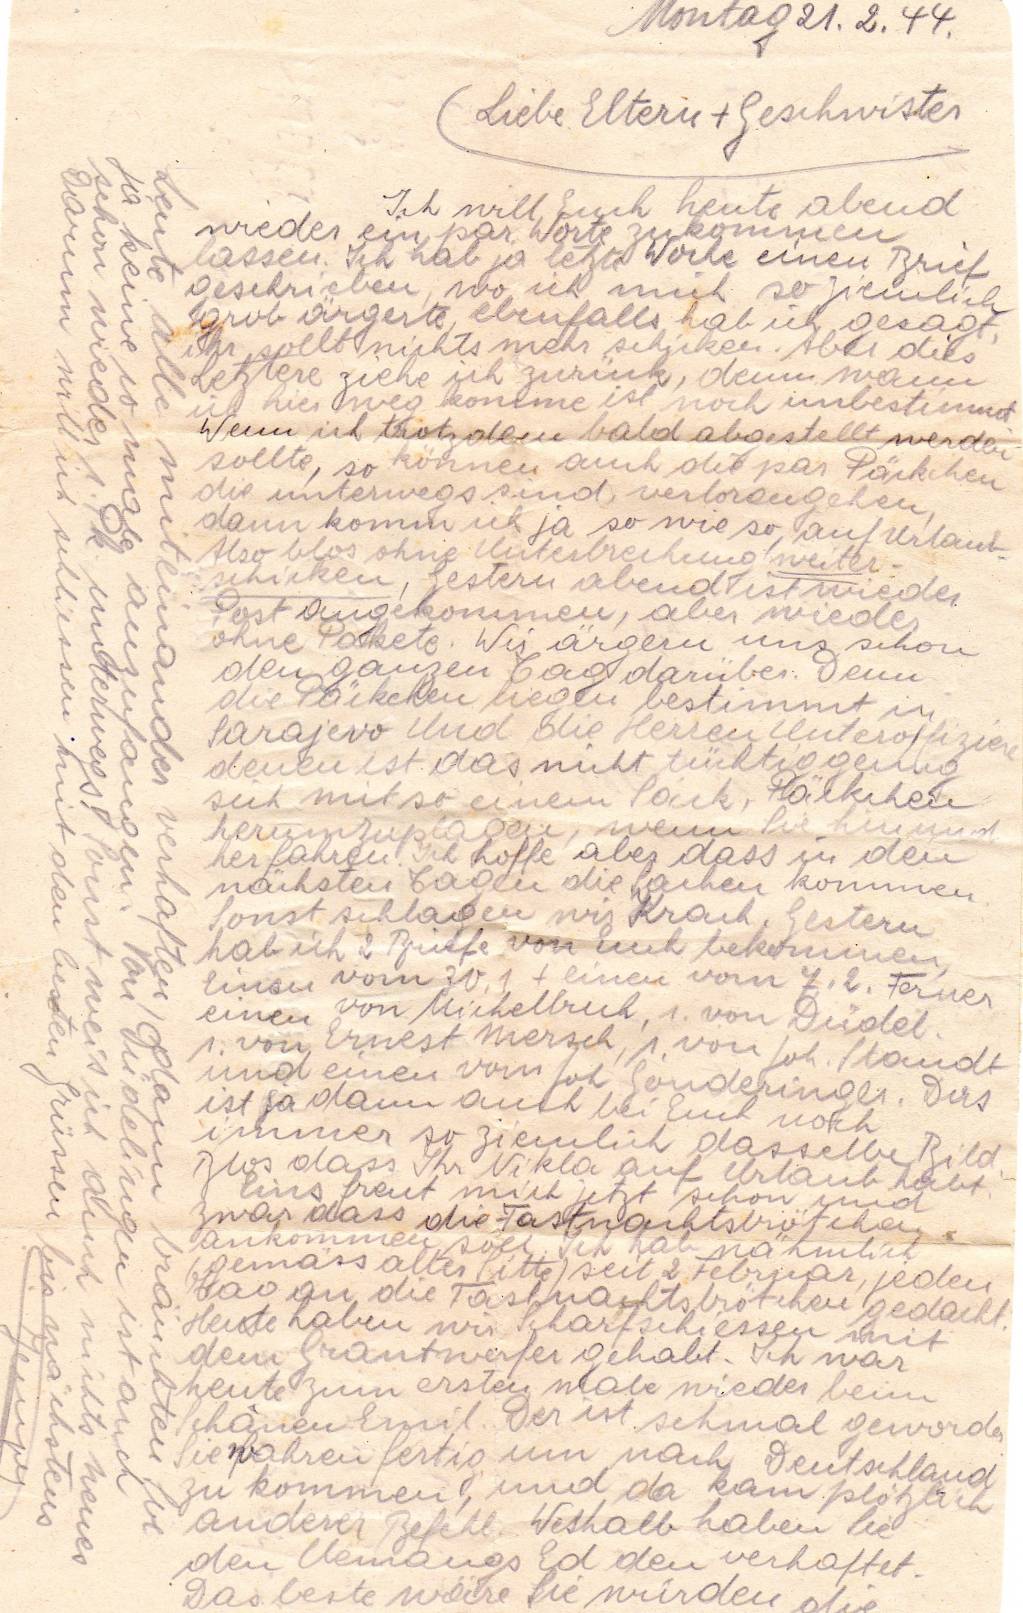 Montag 21. 2. 44.
Liebe Eltern + Geschwister
Ich will Euch heute abend
wieder ein par Worte zukommen
lassen. Ich hab ja letzte Woche einen Brief
geschrieben, wo ich mich so ziemlich
grob ärgerte, ebenfalls hab ich gesagt,
ihr sollt nichts mehr schicken. Aber dies
letztere ziehe ich zurück, denn wann
ich hier weg komme ist noch unbestimmt
Wenn ich trotzdem bald abgestellt werden
sollte, so können auch die par Päckchen
die unterwegs sind, verlorengehen,
dann komm ich ja so wie so, auf Urlaub.
Also blos ohne Unterbrechung weiter-
schicken, Gestern abend ist wieder
Post angekommen, aber wieder
ohne Pakete. Wir ärgern uns schon
den ganzen Tag darüber. Denn
die Päckchen liegen bestimmt in
Sarajevo Und die Herren Unteroffiziere
denen ist das nicht tüchtig genug
sich mit so einem Sack, Päckchen
herumzuplagen, wenn Sie hin und
her fahren. Ich hoffe aber dass in den
nächsten Tagen die Sachen kommen
Sonst schlagen wir Krach. Gestern
hab ich 2 Briefe von Euch bekommen,
Einen vom 30.1 + einen vom 7.2. Ferner
einen von Michelbuch, 1. von Düdel.
1. von Ernest Mersch, 1. von Joh. Staudt
und einen vom Joh Gonderinger. Das
ist ja dann auch bei Euch noch
immer so ziemlich dasselbe Bild.
Blos dass Ihr Nikla auf Urlaub habt.
Eins freut mich jetzt schon und
zwar dass die Fastnachtsbrötchen
ankommen soll. Ich hab nähmlich
(gemäss alter Sitte) seit 2 Februar, jeden
Tag an die Fastnachtsbrötchen gedacht.
Heute haben wir Scharfschiessen mit
dem Granatwerfer gehabt. Ich war
heute zum ersten male wieder beim
Schänen Emil. Der ist schmal geworden
Sie wahren fertig um nach Deutschland
zu kommen, und da kam plötzlich
anderer Befehl. Weshalb haben Sie
den Ed den verhaftet.
Das beste wäre Sie würden die
Leute alle miteinander verhaften, dann bräuchten Sie
ja keine so mehr anzufangen. Von Südelingen ist auch
schon wieder 1. Pk unterwegs. Sonst weis ich auch nichts neues
Darum will ich schliessen mit den besten Grüssen bis nächstens